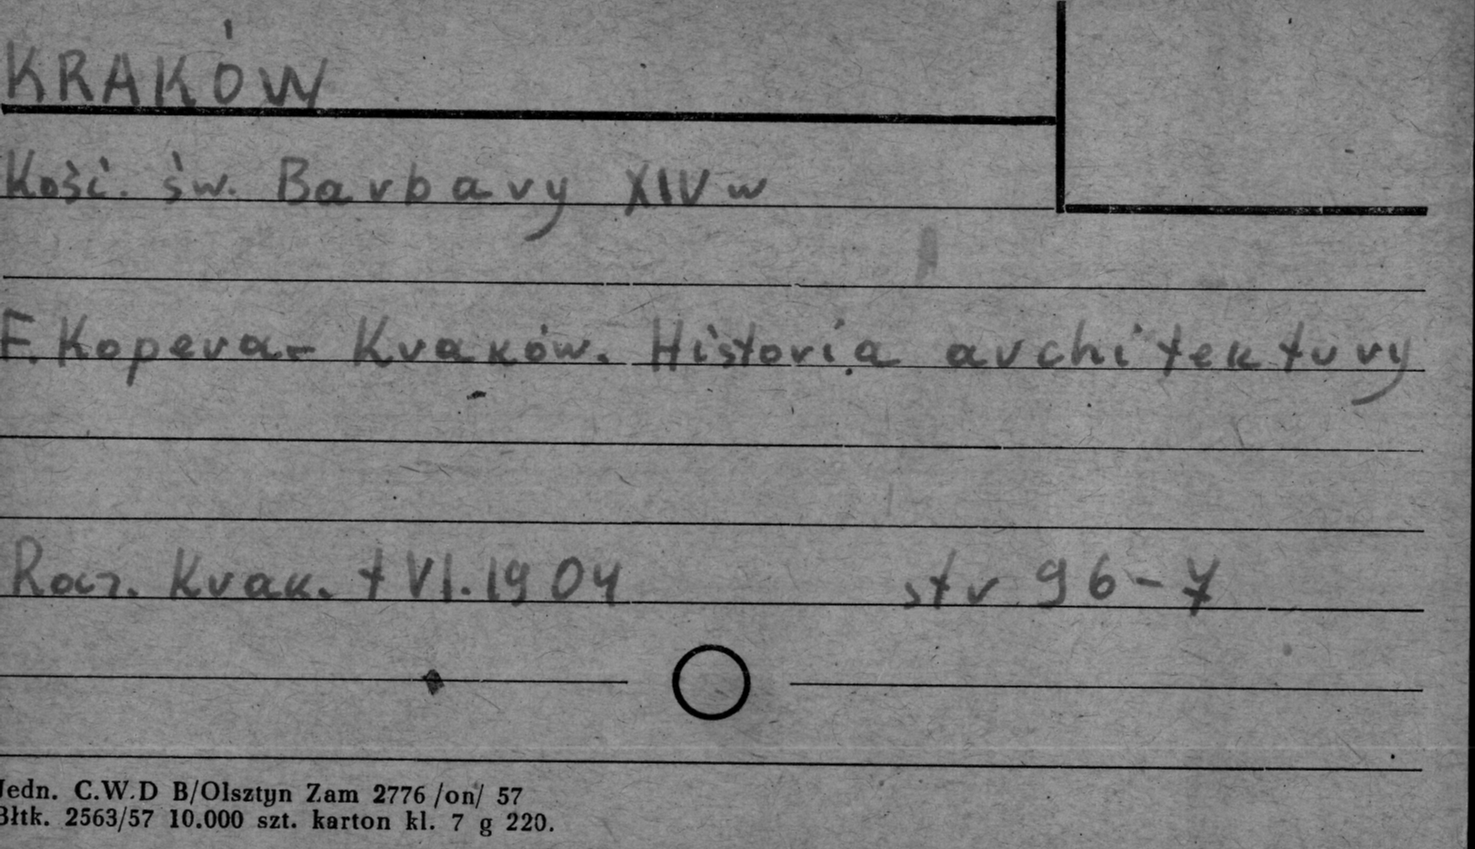 KRAKÓW
Kość. św. Barbary XIV w
F. Kopera - Kraków. Historia architektury
Rocz. Krak. t VI. 1904 str 96-7
Jedn. C.W.D B/Olsztyn Zam 2776 /on/ 57
Błtk. 2563/57 10.000 szt. karton kl. 7 g 220.